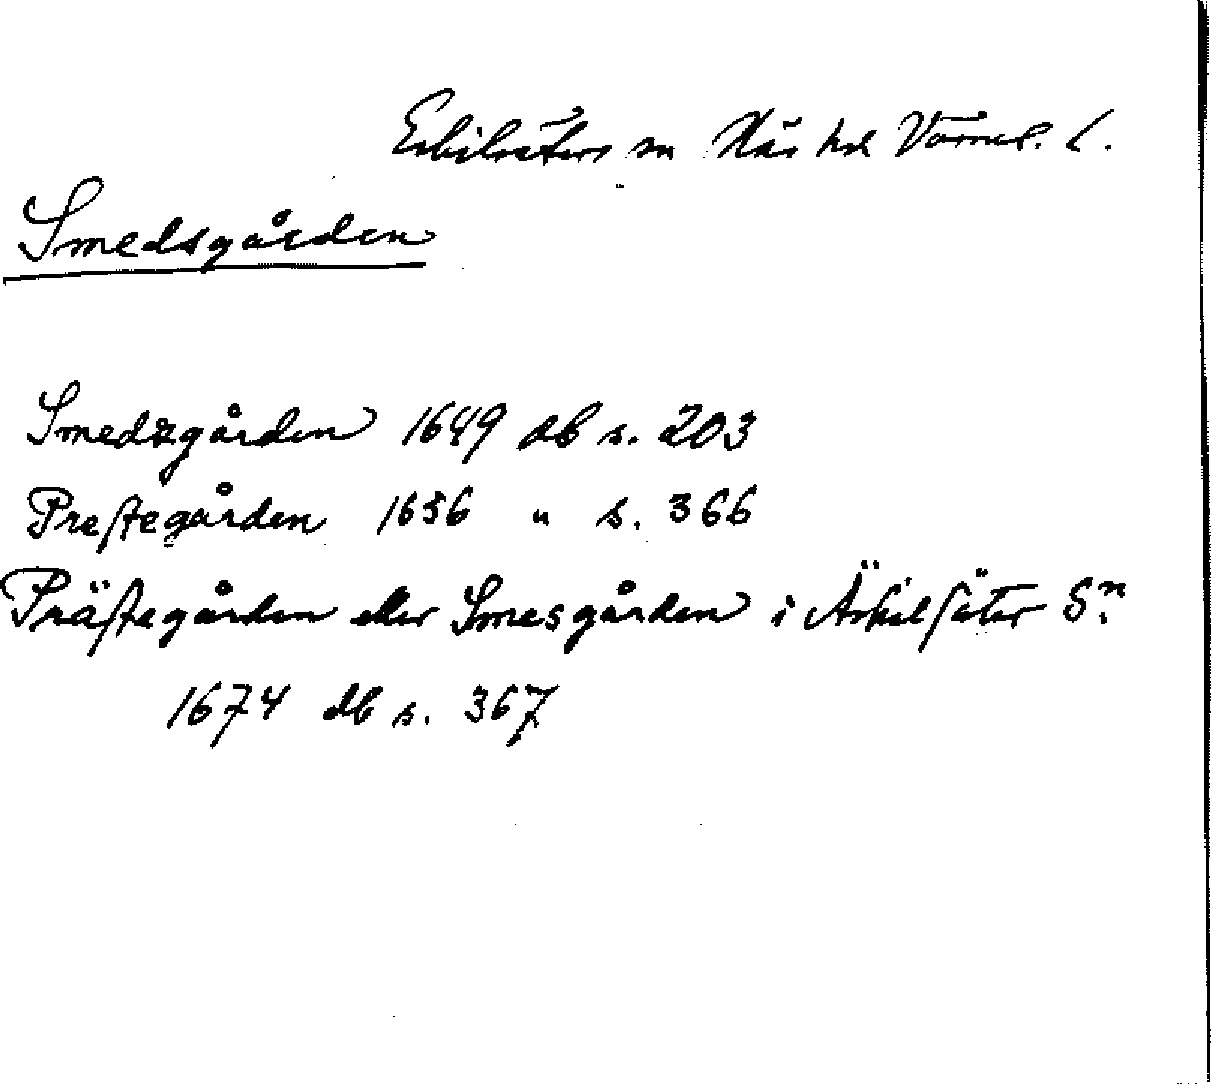 Eskilsäters sn Näs hd Värml. l.
Smedsgården
Smedzgården 1649 db s. 203
Prestegården 1656 " s. 366
Prästegården eller Smesgården i Äskilsäter Sn.
1674 db s. 367